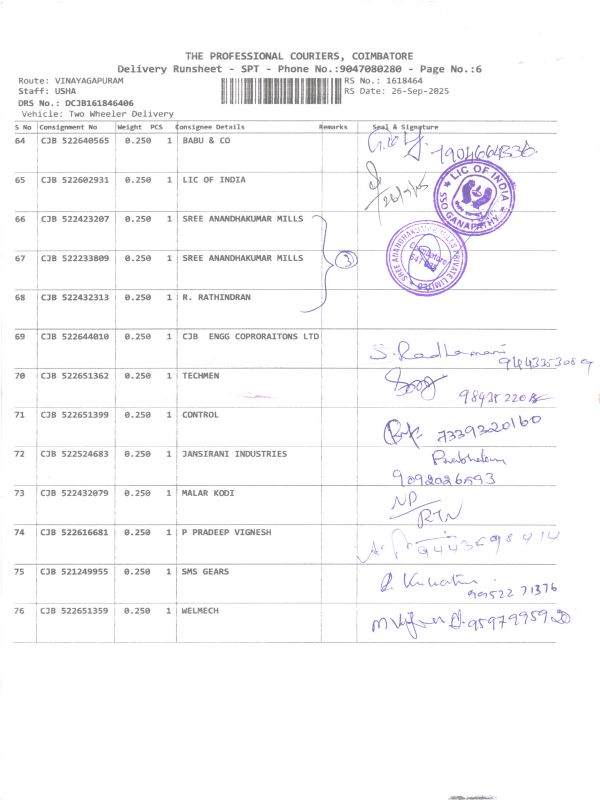 THE PROFESSIONAL COURIERS, COIMBATORE
Delivery Runsheet - SPT - Phone No.:9047080280 - Page No.:6
Route: VINAYAGAPURAM RS No.: 1618464
Staff: USHA RS Date: 26-Sep-2025
DRS No.: DCJB161846406
Vehicle: Two Wheeler Delivery
S No Consignment No Weight PCS Consignee Details Remarks Seal & Signature
64 CJB 522640565 0.250 1 BABU & CO 7904664336
65 CJB 522602931 0.250 1 LIC OF INDIA 26/9/25
LIC OF INDIA
GANAPATHY
66 CJB 522423207 0.250 1 SREE ANANDHAKUMAR MILLS
67 CJB 522233809 0.250 1 SREE ANANDHAKUMAR MILLS 3
SREE ANANDHAKUMAR MILLS PRIVATE LIMITED
Coimbatore
68 CJB 522432313 0.250 1 R. RATHINDRAN
69 CJB 522644010 0.250 1 CJB ENGG COPRORAITONS LTD S. Radhamani
70 CJB 522651362 0.250 1 TECHMEN
71 CJB 522651399 0.250 1 CONTROL 7339320160
72 CJB 522524683 0.250 1 JANSIRANI INDUSTRIES Prabhakaran
9092026593
73 CJB 522432079 0.250 1 MALAR KODI NP
RTN
74 CJB 522616681 0.250 1 P PRADEEP VIGNESH 9443698414
75 CJB 521249955 0.250 1 SMS GEARS
99522 71376
76 CJB 522651359 0.250 1 WELMECH 9597995920